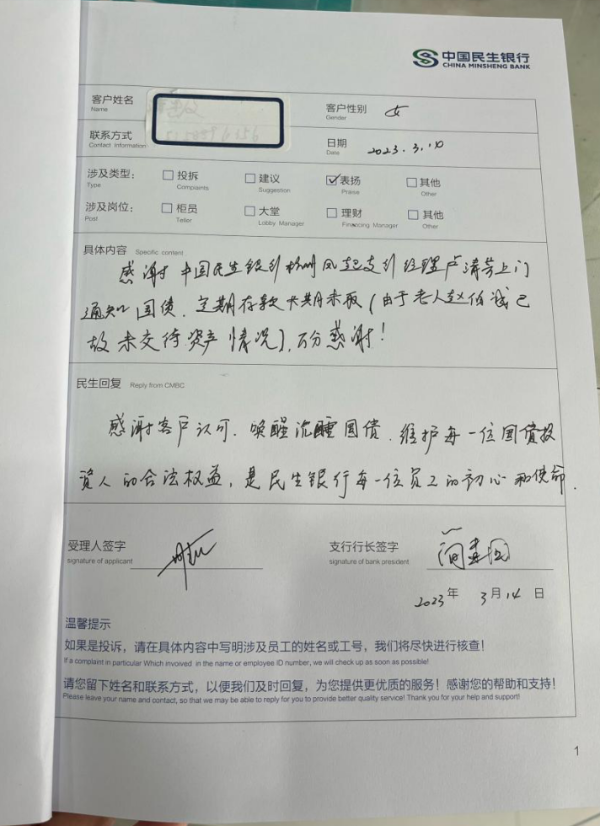 中国民生银行
CHINA MINSHENG BANK
客户姓名
Name
客户性别 女
Gender
联系方式
Contact Information
日期 2023.3.10
Date
涉及类型: 投拆 建议 表扬 其他
Type Compaints Suggestion Praise Other
涉及岗位: 柜员 大堂 理财 其他
Post Teller Lobby Manager Financing Manager Other
具体内容 Specific content
感谢中国民生银行杭州凤起支行经理卢清芳上门
通知国债、定期存款长期未取(由于老人赵伯诚已
故未交待资产情况),万分感谢!
民生回复 Reply from CMBC
感谢客户认可,唤醒沉睡国债,维护每一位国债投
资人的合法权益,是民生银行每一位员工的初心和使命.
受理人签字
signature of applicant
支行行长签字
signature of bank president
2023年 3月14日
温馨提示
如果是投诉,请在具体内容中写明涉及员工的姓名或工号,我们将尽快进行核查!
If a complaint in particular Which involved in the name or employee ID number, we will check up as soon as possible!
请您留下姓名和联系方式,以便我们及时回复,为您提供更优质的服务!感谢您的帮助和支持!
Please leave your name and contact, so that we may be able to reply for you to provide better quality service! Thank you for your help and support!
1